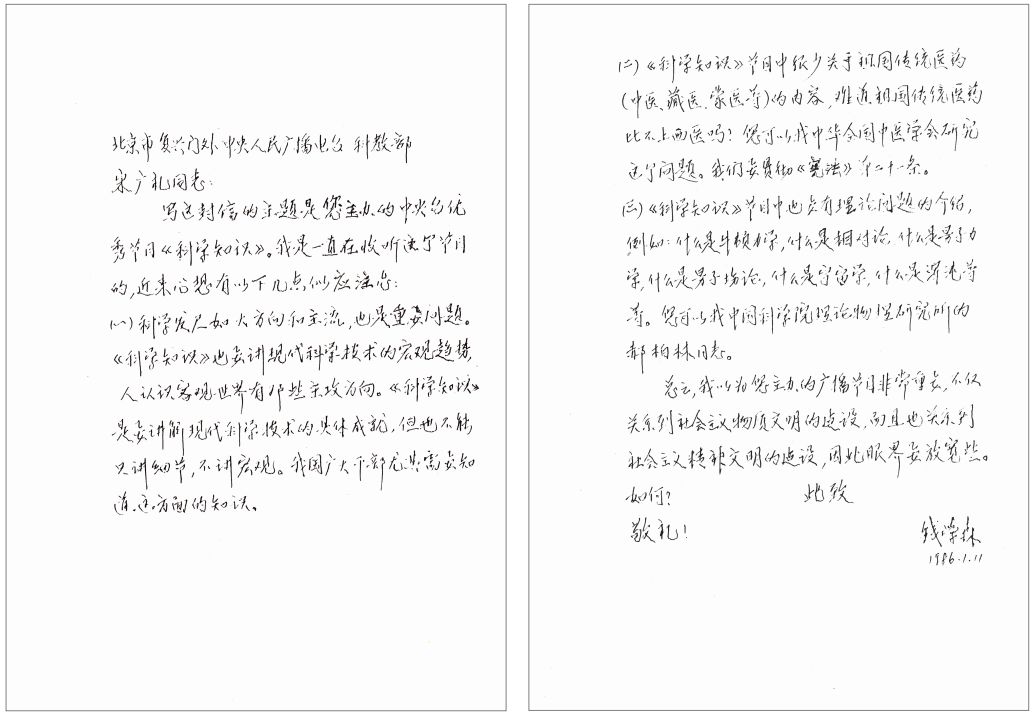 北京市复兴门外中央人民广播电台 科教部
宋广礼同志:
写这封信的主题是您主办的中央台优
秀节目《科学知识》。我是一直在收听这个节目
的,近来心想有以下几点似应注意:
(一)科学发展如大方向和主流,也是重要问题。
《科学知识》也要讲现代科学技术的宏观趋势,
人认识客观世界有那些主攻方向。《科学知识》
是要讲解现代科学技术的具体成就,但也不能
只讲细节,不讲宏观。我国广大干部尤其需要知
道这方面的知识。
(二)《科学知识》节目中很少关于祖国传统医药
(中医、藏医、蒙医等)的内容,难道祖国传统医药
比不上西医吗?您可以找中华全国中医学会研究
这个问题。我们要贯彻《宪法》第二十一条。
(三)《科学知识》节目中也要有理论问题的介绍,
例如:什么是牛顿力学,什么是相对论,什么是量子力
学,什么是量子场论,什么是宇宙学,什么是浑沌等
等。您可以找中国科学院理论物理研究所的
郝柏林同志。
总之,我以为您主办的广播节目非常重要,不仅
关系到社会主义物质文明的建设,而且也关系到
社会主义精神文明的建设,因此眼界要放宽些。
如何? 此致
敬礼!
钱学森
1986.1.11